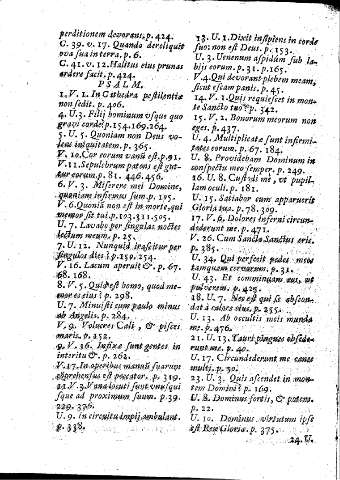 perditionem devorant, p. 424.
C. 39. v. 17. Quando dereliquit
ova sua in terra. p. 6.
C. 41. v. 12. Halitus ejus prunas
ardere facit, p. 424.
PSALM.
1. V. 1. In Cathedra pestilentiæ
non sedit. p. 406.
4. U. 3. Filij hominum usque quo
gravi corde? p. 154. 169. 264.
5. U. 5. Quoniam non Deus vo-
lens iniquitatem. p. 365.
V. 10. Cor eorum vanũ est p. 91.
V. 11. Sepulchrum patens est gut-
tur eorum p. 81. 446. 456.
6. V. 3. Miserere mei Domine,
quoniam infirmus sum, p. 195.
V. 6. Quoniã non est in morte, qui
memor sit tui p. 103. 311. 505.
U. 7. Lavabo per singulas noctes
lectum meum, p. 23.
7. U. 12. Nunquid irascitur per
singulos dies? p. 159. 254.
V. 16. Lacum aperuit &. p. 67.
68. 168.
8. V. 5. Quid est homo, quod me-
mor es eius? p. 298.
U. 7. Minuisti eum paulo minus
ab Angelis. p. 284.
V. 9. Volucres Cæli, & pisces
maris. p. 152.
9. V. 36. Infixæ sunt gentes in
interitu &. p. 262.
V. 17. In operibus manuũ suarum
comprehensus est peccator. p. 319.
11. V. 3. Vana locuti sunt unusqui
sque ad proximum suum. p. 39.
229. 376.
U. 9. in circuitu impij ambulant.
p. 338.
13. U. 1. Dixit insipiens in corde
suo: non est Deus. p. 153.
U. 3. Venenum aspidum sub la-
bijs eorum. p. 31. p. 165.
V. 4. Qui devorant plebem meam,
sicut escam panis. p. 45.
14. V. 1. Quis requiescet in mon-
te Sancto tuo? p. 342.
15. V. 2. Bonorum meorum non
eges. p. 437.
U. 4. Multiplicatæ sunt infirmi-
tates eorum. p. 67. 184.
U. 8. Providebam Dominum in
conspectu meo semper. p. 249.
16. U. 8. Custodi me, ut pupil-
lam oculi. p. 181.
U. 15. Satiabor cum apparuerit
Gloria tua. p. 78. 309.
17. V. 6. Dolores inferni circun-
dederunt me. p. 471.
V. 26. Cum Sancto Sanctus eris.
p. 385.
U. 34. Qui perfecit pedes meos
tamquam cervorum. p. 31.
U. 43. Et comminuam eos, ut
pulverem. p. 425.
18. U. 7. Nec est qui se abscon-
dat à calore eius. p. 255.
U. 13. Ab occultis meis munda
me. p. 476.
21. U. 13. Tauri pingues obsede-
runt me. p. 40.
U. 17. Circundederunt me canes
multi. p. 30.
23. U. 3. Quis ascendet in mon-
tem Domini? p. 169.
U. 8. Dominus fortis, & potens.
p. 22.
U. 10. Dominus virtutum ipse
est Rex Gloriæ. p. 375.
24. U.